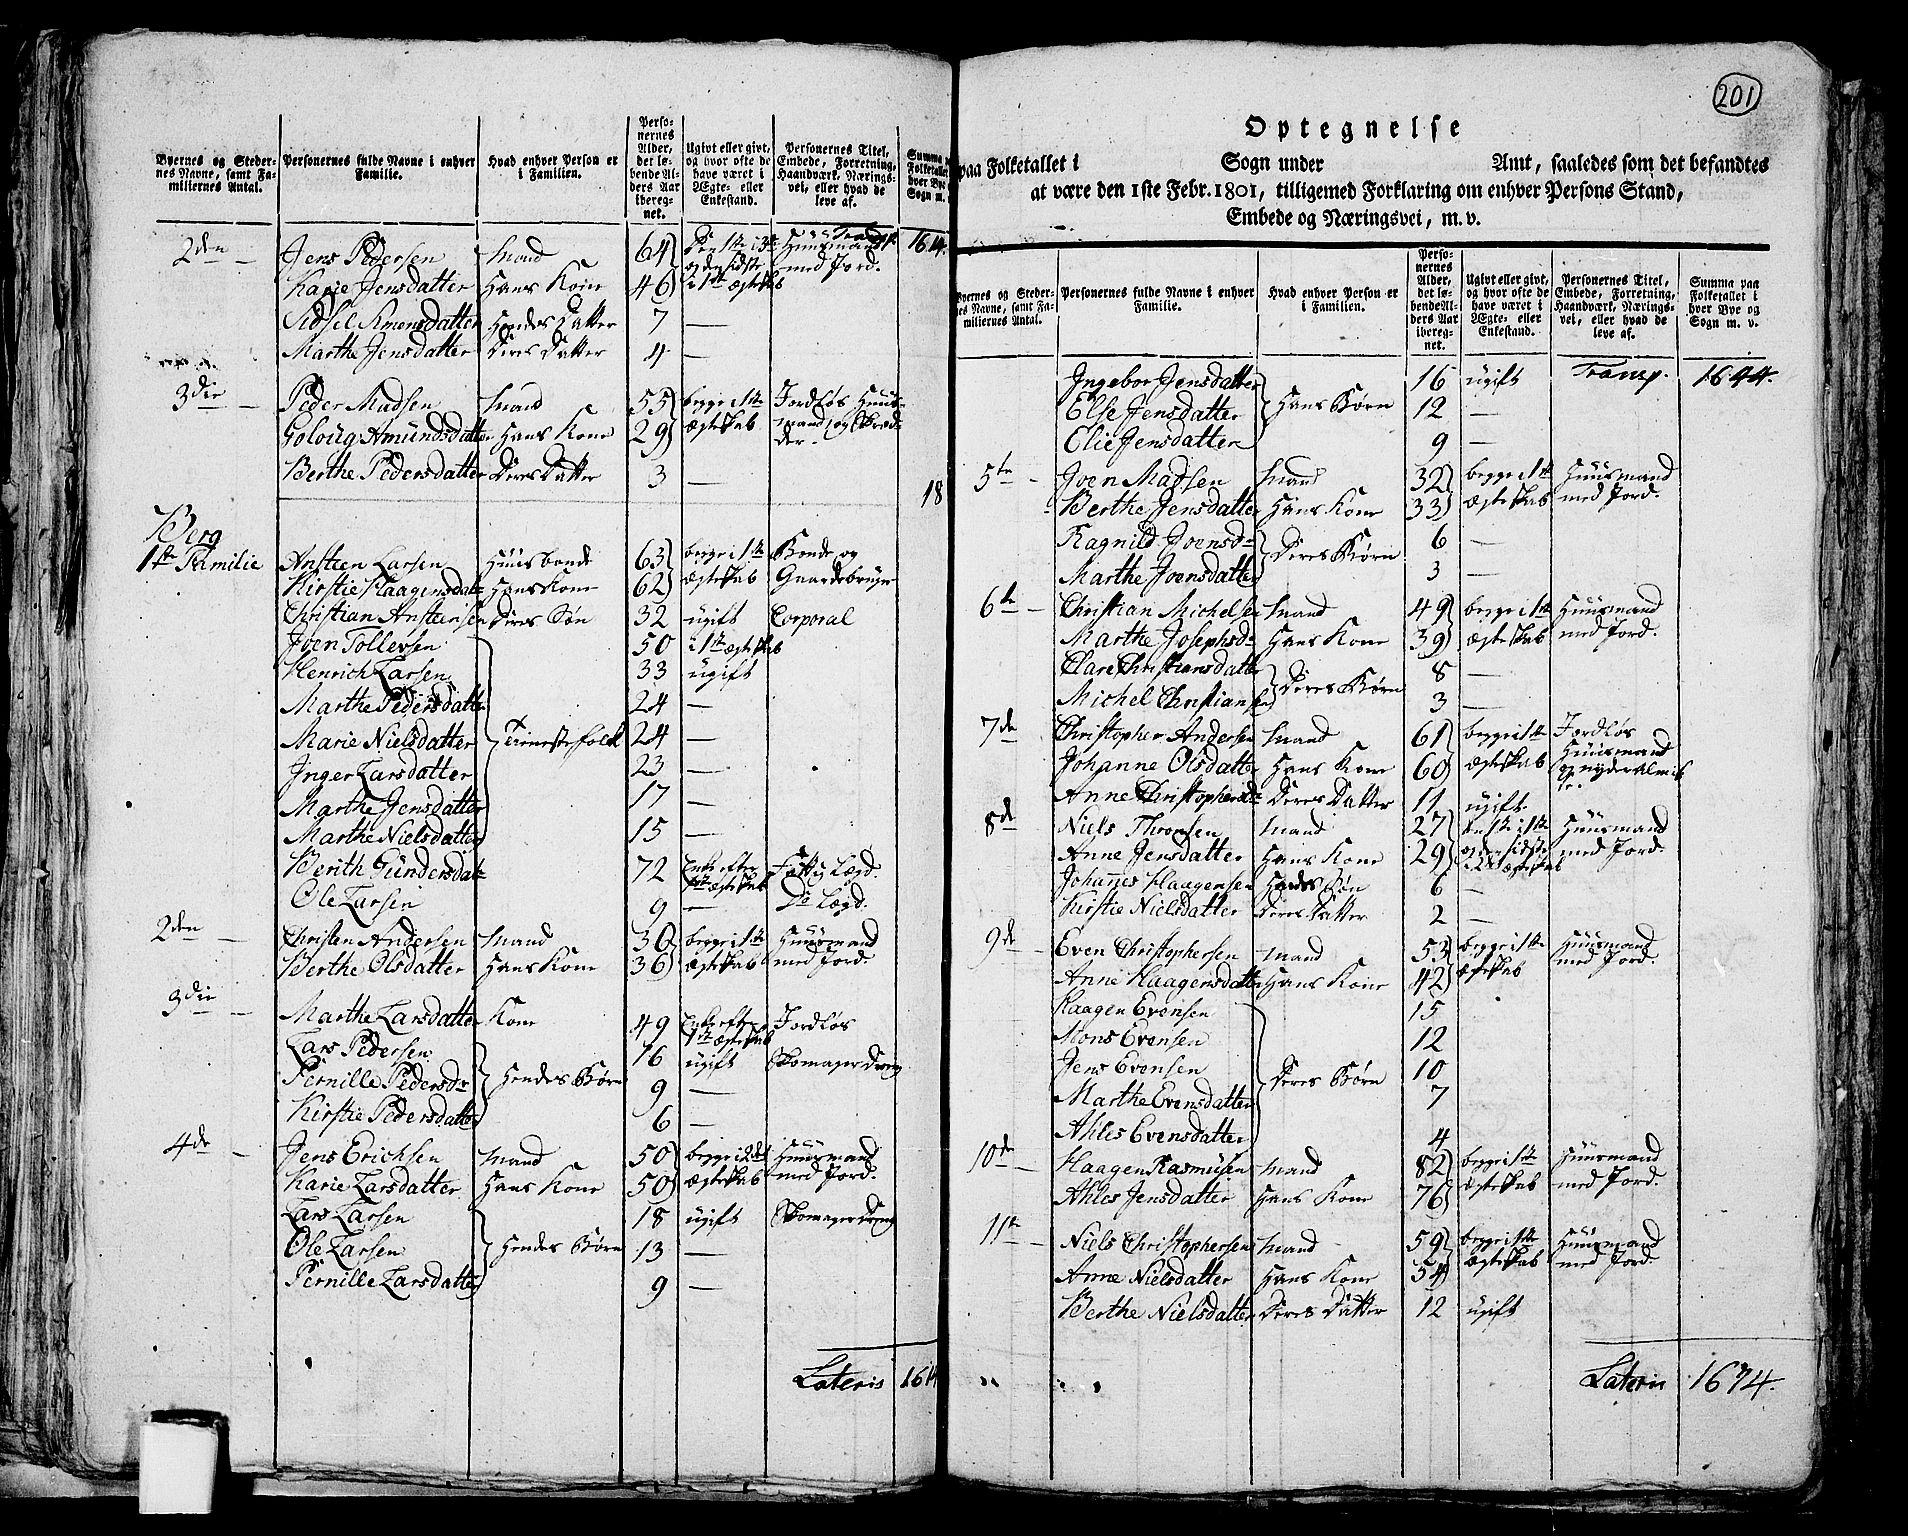 Byernes og Stedernes Navne, samt Familiernes Antal.
Personernes fulde Navne i enhver Familie.
Hvad enhver Person er i Familien.
Personernes Alder, det løbende Alders Aar iberegnet.
Ugivt eller givt, og hvor ofte de have været i Ægte- eller Enkestand.
Personernes Titel, Embede, Forretning, Haandværk, Næringsvei, eller hvad de leve af.
Summa
Transp. 1614.
2den Jens Pedersen Mand 64 Den 1ste i 3die Huusmand
Karie Jensdatter Hans Kone 46 og den sidste i 1ste ægteskab med Jord.
Sidsel Simensdatter Hendes Datter 7 —
Marthe Jensdatter Deres Datter 4 —
3die Peder Madsen Mand 55 begge i 1ste Jordløs Huus-
Goloug Amundsdatter Hans Kone 29 ægteskab mand og Skræd-
der.
Berthe Pedersdatter Deres Datter 3 —
18
Berg
1ste Familie Ansteen Larsen Huusbonde 63 begge i 1ste Bonde og
Kirstie Haagensdatr Hans Kone 62 ægteskab Gaardebruger
Christian Ansteensen Deres Søn 32 ugift Corporal
Joen Tollevsen 50 i 1ste ægteskab
Henrich Larsen 33 ugift
Marthe Pedersdatter 24 —
Marie Nielsdatter Tienestefolk 24 —
Inger Larsdatter 23 —
Marthe Jensdatter 17 —
Marthe Nielsdatter 15 —
Berith Gundersdatr 72 Enke efter 1ste ægteskab Lægd.
Ole Larsen 9 — Do Lægd.
2den Christen Andersen Mand 30 begge i 1ste Huusmand
Berthe Olsdatter Hans Kone 36 ægteskab med Jord.
3die Marthe Larsdatter Kone 49 Enke efter 1ste ægteskab Jordløs
Lars Pedersen 16 ugift Skomager Dreng
Pernille Pedersdr Hendes Børn 9 —
Kirstie Pedersdatter 6 —
4de Jens Erichsen Mand 50 begge i 2det Huusmand
Karie Larsdatter Hans Kone 50 ægteskab med Jord.
Lars Larsen 18 ugift Skomager Dreng
Ole Larsen Hendes Børn 13 —
Pernille Larsdatter 9 —
Lateris 1614
201
Optegnelse
paa Folketallet i Sogn under Amt, saaledes som det befandtes
at være den 1ste Febr. 1801, tilligemed Forklaring om enhver Persons Stand,
Embede og Næringsvei, m. v.
Byernes og Stedernes Navne, samt Familiernes Antal.
Personernes fulde Navne i enhver Familie.
Hvad enhver Person er i Familien.
Personernes Alder, det løbende Alders Aar iberegnet.
Ugivt eller givt, og hvor ofte de have været i Ægte- eller Enkestand.
Personernes Titel, Embede, Forretning, Haandværk, Næringsvei, eller hvad de leve af.
Summa paa Folketallet i hver Bye og Sogn m. v.
Ingebor Jensdatter 16 ugift Transp. 1644.
Else Jensdatter Hans Børn 12 —
Elie Jensdatter 9 —
5te Joen Madsen Mand 32 begge i 1ste Huusmand
Berthe Jensdatter Hans Kone 33 ægteskab med Jord.
Ragnild Joensdr Deres Børn 6 —
Marthe Joensdatter 3 —
6te Christian Michelsen Mand 49 begge i 1ste Huusmand
Marthe Josephsdr Hans Kone 39 ægteskab med Jord.
Clare Christiansdatter 8 —
Michel Christiansen Deres Børn 3 —
7de Christopher Andersen Mand 61 begge i 1ste Jordløs
Johanne Olsdatter Hans Kone 60 ægteskab Huusmand og nyder Almis
Anne Christophersdr Deres Datter 11 ugift
8de Niels Thronsen Mand 27 den 1ste i 1ste Huusmand
Anne Jensdatter Hans Kone 29 og den sidste i 2det ægteskab med Jord.
Johannes Haagensen Hendes Søn 6 —
Kirstie Nielsdatter Deres Datter 2 —
9de Even Christophersen Mand 53 begge i 1ste Huusmand
Anne Haagensdatter Hans Kone 42 ægteskab med Jord.
Haagen Evensen 15
Mons Evensen 12
Jens Evensen Deres Børn 10
Marthe Evensdatter 7
Ahles Evensdatter 4
10de Haagen Rasmusen Mand 82 begge i 1ste Huusmand
Ahles Jensdatter Hans Kone 76 ægteskab med Jord.
11te Niels Christophersen Mand 59 begge i 1ste Huusmand
Anne Nielsdatter Hans Kone 54 ægteskab med Jord.
Berthe Nielsdatter Deres Datter 12 ugift
Lateris 1674.